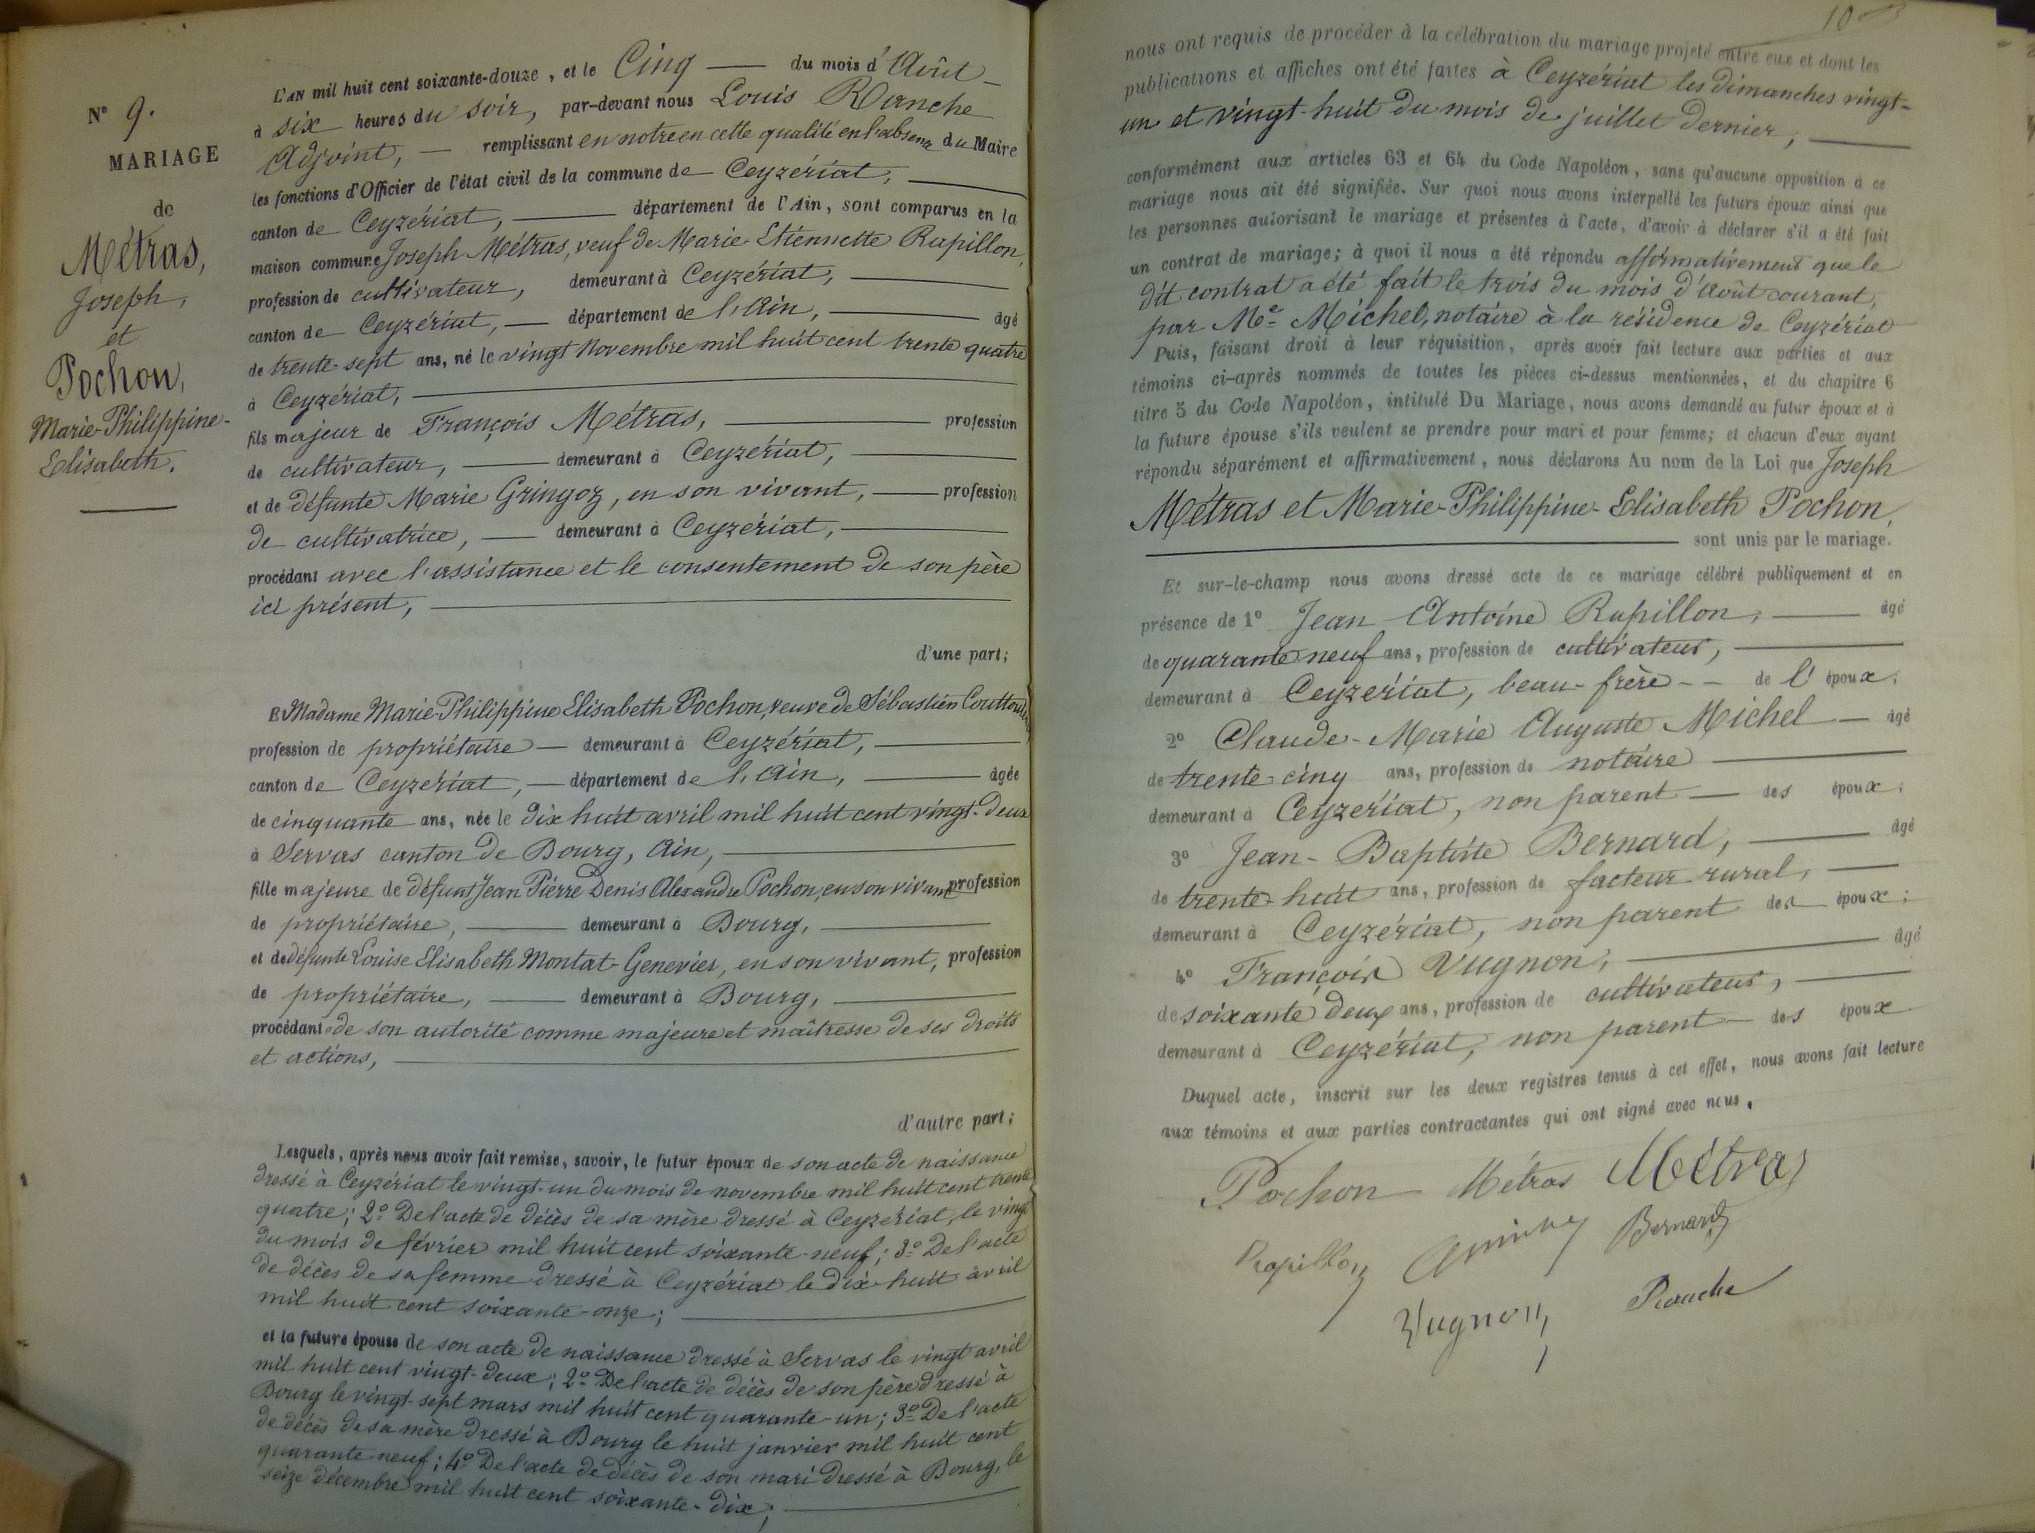 N° 9.
MARIAGE
de
Métras,
Joseph,
et
Pochon,
Marie-Philippine-
Elisabeth.
L'AN mil huit cent soixante-douze, et le Cinq du mois d'Août
à six heures du soir, par-devant nous Louis Ranche
Adjoint, remplissant en notre en cette qualité en l'absence du Maire
les fonctions d'Officier de l'état civil de la commune de Ceyzériat,
canton de Ceyzériat, département de l'Ain, sont comparus en la
maison commune Joseph Métras, veuf de Marie Etiennette Rapillon,
profession de cultivateur, demeurant à Ceyzériat,
canton de Ceyzériat, département de l'Ain, âgé
de trente-sept ans, né le vingt Novembre mil huit cent trente quatre
à Ceyzériat,
fils majeur de François Métras, profession
de cultivateur, demeurant à Ceyzériat,
et de défunte Marie Gringoz, en son vivant, profession
de cultivatrice, demeurant à Ceyzériat,
procédant avec l'assistance et le consentement de son père
ici présent,
d'une part;
Et Madame Marie-Philippine Elisabeth Pochon, veuve de Sébastien
profession de propriétaire demeurant à Ceyzériat,
canton de Ceyzériat, département de l'Ain, âgée
de cinquante ans, née le dix huit avril mil huit cent vingt-deux
à Servas canton de Bourg, Ain,
fille majeure de défunt Jean Pierre Denis Alexandre Pochon, en son vivant profession
de propriétaire, demeurant à Bourg,
et de défunte Louise Elisabeth Montat-Genevier, en son vivant, profession
de propriétaire, demeurant à Bourg,
procédant de son autorité comme majeure et maîtresse de ses droits
et actions,
d'autre part;
Lesquels, après nous avoir fait remise, savoir, le futur époux de son acte de naissance
dressé à Ceyzériat le vingt-un du mois de novembre mil huit cent trente
quatre; 2° De l'acte de décès de sa mère dressé à Ceyzériat, le vingt
du mois de février mil huit cent soixante-neuf; 3° De l'acte
de décès de sa femme dressé à Ceyzériat le dix-huit avril
mil huit cent soixante-onze;
et la future épouse de son acte de naissance dressé à Servas le vingt avril
mil huit cent vingt-deux; 2° De l'acte de décès de son père dressé à
Bourg le vingt-sept mars mil huit cent quarante-un; 3° De l'acte
de décès de sa mère dressé à Bourg le huit janvier mil huit cent
quarante neuf; 4° De l'acte de décès de son mari dressé à Bourg, le
seize décembre mil huit cent soixante-dix;
10
nous ont requis de procéder à la célébration du mariage projeté entre eux et dont les
publications et affiches ont été faites à Ceyzériat les dimanches vingt-
un et vingt-huit du mois de juillet dernier,
conformément aux articles 63 et 64 du Code Napoléon, sans qu'aucune opposition à ce
mariage nous ait été signifiée. Sur quoi nous avons interpellé les futurs époux ainsi que
les personnes autorisant le mariage et présentes à l'acte, d'avoir à déclarer s'il a été fait
un contrat de mariage; à quoi il nous a été répondu affirmativement que le
dit contrat a été fait le trois du mois d'Août courant,
par Me Michel, notaire à la résidence de Ceyzériat
Puis, faisant droit à leur réquisition, après avoir fait lecture aux parties et aux
témoins ci-après nommés de toutes les pièces ci-dessus mentionnées, et du chapitre 6
titre 5 du Code Napoléon, intitulé Du Mariage, nous avons demandé au futur époux et à
la future épouse s'ils veulent se prendre pour mari et pour femme; et chacun d'eux ayant
répondu séparément et affirmativement, nous déclarons Au nom de la Loi que Joseph
Métras et Marie-Philippine-Elisabeth Pochon,
sont unis par le mariage.
Et sur-le-champ nous avons dressé acte de ce mariage célébré publiquement et en
présence de 1° Jean Antoine Rapillon, âgé
de quarante neuf ans, profession de cultivateur,
demeurant à Ceyzériat, beau-frère de l'époux;
2° Claude-Marie Auguste Michel âgé
de trente-cinq ans, profession de notaire
demeurant à Ceyzériat, non parent des époux;
3° Jean-Baptiste Bernard, âgé
de trente-huit ans, profession de facteur rural,
demeurant à Ceyzériat, non parent des époux;
4° François Vugnon, âgé
de soixante deux ans, profession de cultivateur,
demeurant à Ceyzériat, non parent des époux
Duquel acte, inscrit sur les deux registres tenus à cet effet, nous avons fait lecture
aux témoins et aux parties contractantes qui ont signé avec nous.
Pochon Métras Métras
Rapillon Bernard
Vugnon Ranche